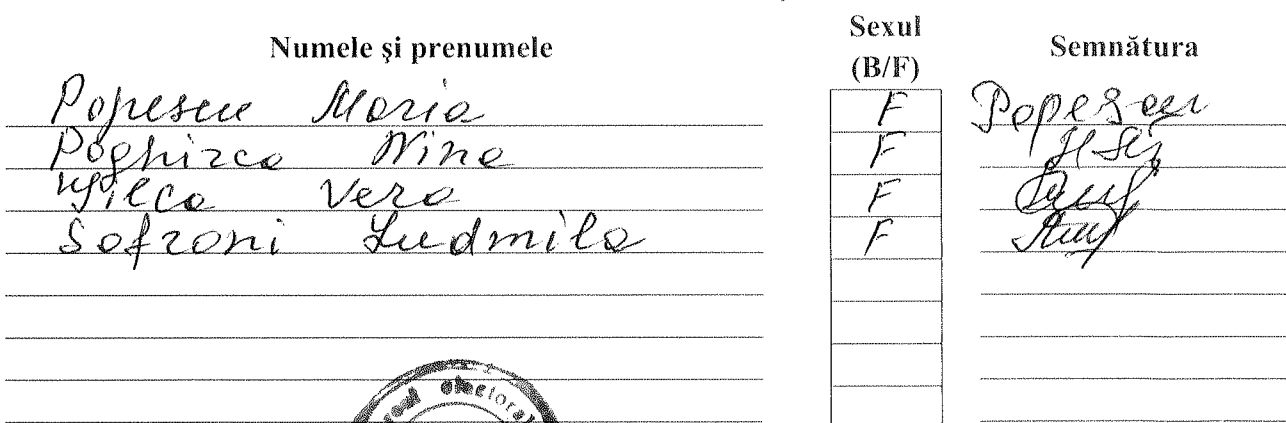 Numele și prenumele Sexul (B/F) Semnătura
Popescu Maria F Popescu
Poghirca Nina F
Vera F
Sofroni Ludmila F
electoral